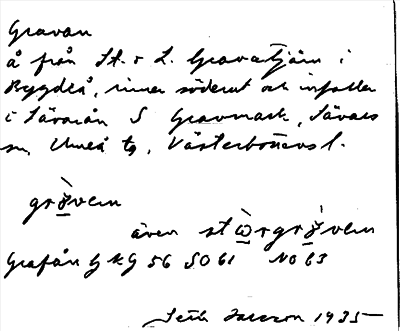 Gravån
å från St. o L. Gravatjärn i
Bygdeå, rinner söderut och infaller
i Sävarån S Gravmark, Sävars
sn, Umeå tg, Västerbottens l.
gràvem
även stòrgràvem
Grafån GKG 56 SO 61 NO 63
1935